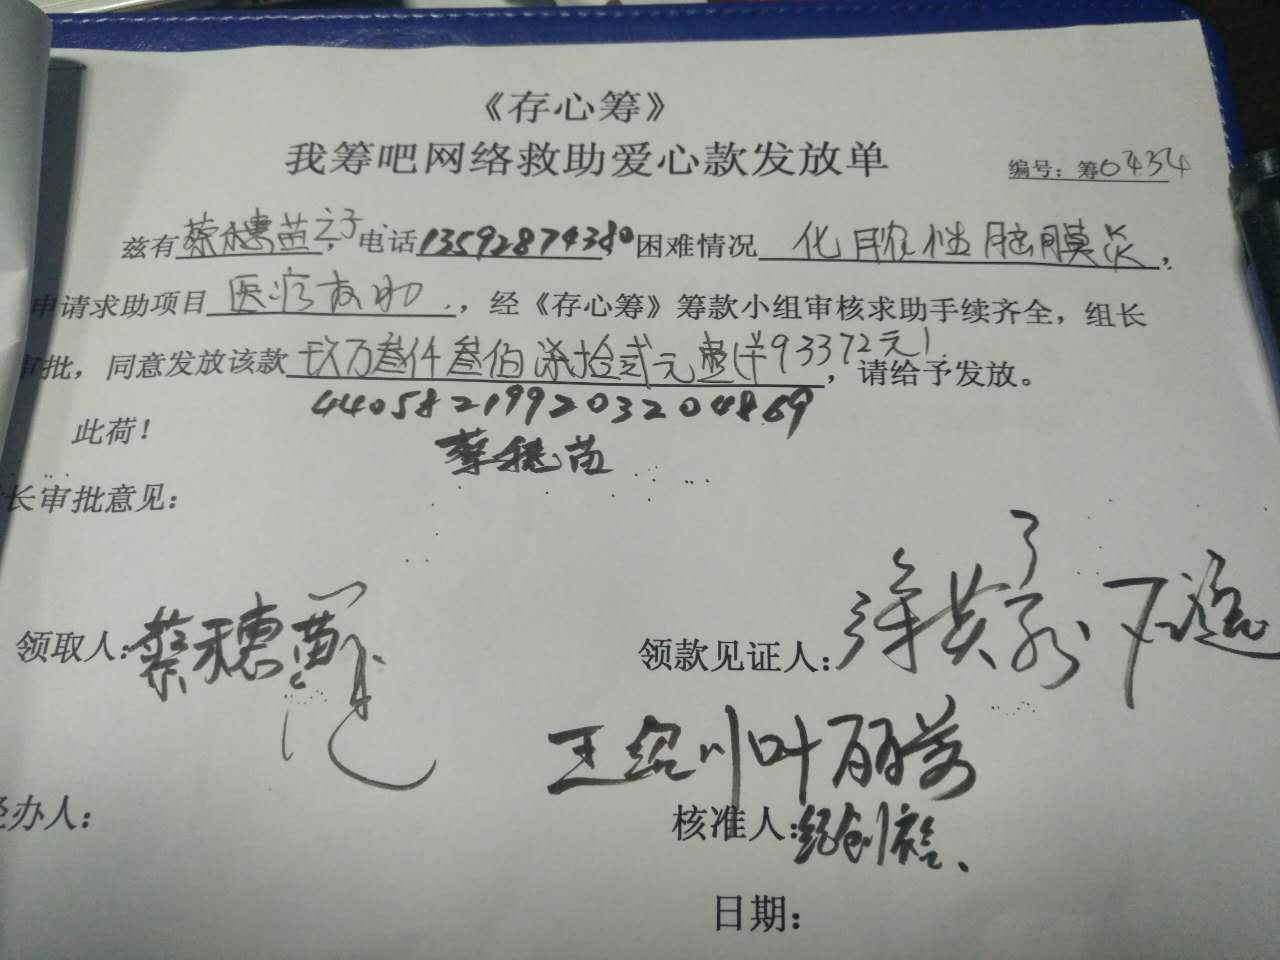 《存心筹》
我筹吧网络救助爱心款发放单
编号：筹0434
兹有蔡穗苗之子，电话13592874380困难情况 化脓性脑膜炎，
申请求助项目 医疗救助 ，经《存心筹》筹款小组审核求助手续齐全，组长
审批，同意发放该款 玖万叁仟叁佰柒拾贰元整(￥93372元)，请给予发放。
440582199203204869
此荷！
蔡穗苗
长审批意见：
领取人：蔡穗苗
领款见证人：
王绍川 叶丽芳
经办人：
核准人：
日期：